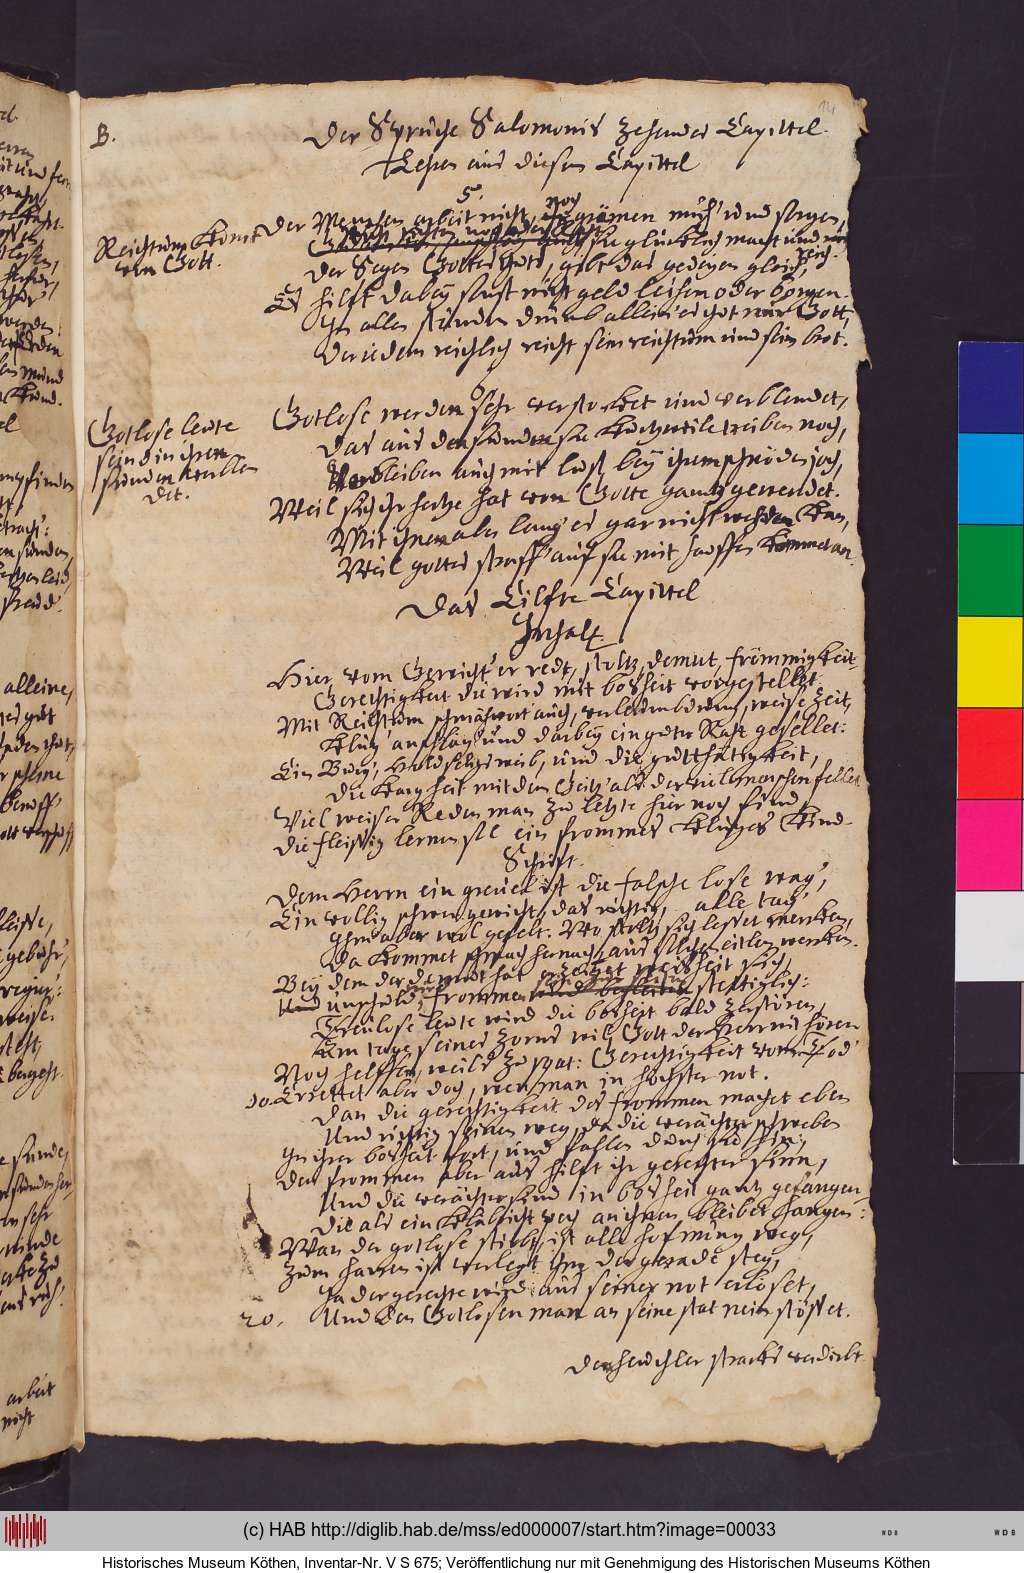 14
B.
Der Sprüche Salomonis Zehendes Capittel.
Lehren aus diesem Capittel
5.
Reichtum komt
von Gott.
Der Menschen arbeit nicht, noch grämen müh' und sorgen,
sie glücklich macht und reich.
Der Segen Gottes thuts, gibt das gedeyen gleich,
Es hilft dabey sonst nicht geld leihen oder borgen.
In allen stenden drumb allein er hat nur Gott,
Der iedem reichlich reicht sein reichtum und sein brot.
6.
Gotlose leute
seind in ihren
sünden verblen
det.
Gotlose werden sehr verstokket und verblendet,
Das aus den sünden sie kurtzweile treiben noch,
Verbleiben auch mit lust bey ihrem schnöden joch,
Weil sich ihr hertze hat von Gotte gantz gewendet.
Mit ihnen aber lang' es gar nicht wehren kan,
Weil gottes straff' auf sie mit hauffen kommet an.
Das Eilfte Capittel
Inhalt.
Hier vom Gewicht' er redt, stoltz, demut, frömmigkeit
Gerechtigkeit die wird mit bosheit vorgestellet:
Mit Reichtum schmähwort auch, verleumbdern, weise Zeit,
Klug' anschläg' und darbey ein guter Raht gesellet:
Ein Bürg', holdselig weib, und die gutthätigkeit,
Die kargheit mit dem Geitz' als der viel menschen fellet
Viel weiser Reden man zu letzte hier noch find,
die fleissig lernen sol ein frommes kluges Kind.
Schrift.
Dem Herrn ein greuel ist die falsche lose wag',
Ein völlig schwer gewicht, das richtig, alle tag'
Ihm aber wol gefelt. Wo stoltz sich lesset mercken,
Da kommet schmach hernach, aus solchen eitlen wercken.
Bey dem der demut hat erzeiget weisheit sich,
Und unschuld frommen stettiglich:
Treulose leute wird die bosheit bald zerstören,
Am tage seines Zorns will Gott der Herr nit hören
Noch helffen, weils zu spat: Gerechtigkeit vom Tod'
10. Errettet aber doch, wen man in höchster not.
Dan die gerechtigkeit des frommen machet eben
Und richtig seinen weg, da die verächter schweben
In ihrer bosheit fort, und fahlen durch sie hin,
Den frommen aber aus hilft ihr gerechter sinn,
Und die verächter sind in bosheit gantz gefangen
Die als ein an ihnen bleibet hangen:
Wan der gotlose stirbt, ist alle hofnung weg,
Zum harren ist verlegt ihm der gerade steg,
Ja der gerechte wird aus seiner not erlöset,
20. Und den Gotlosen man an seine stat nein stösset.
Der heuchler
(c) HAB http://diglib.hab.de/mss/ed000007/start.htm?image=00033
WDB
WDB
Historisches Museum Köthen, Inventar-Nr. V S 675; Veröffentlichung nur mit Genehmigung des Historischen Museums Köthen